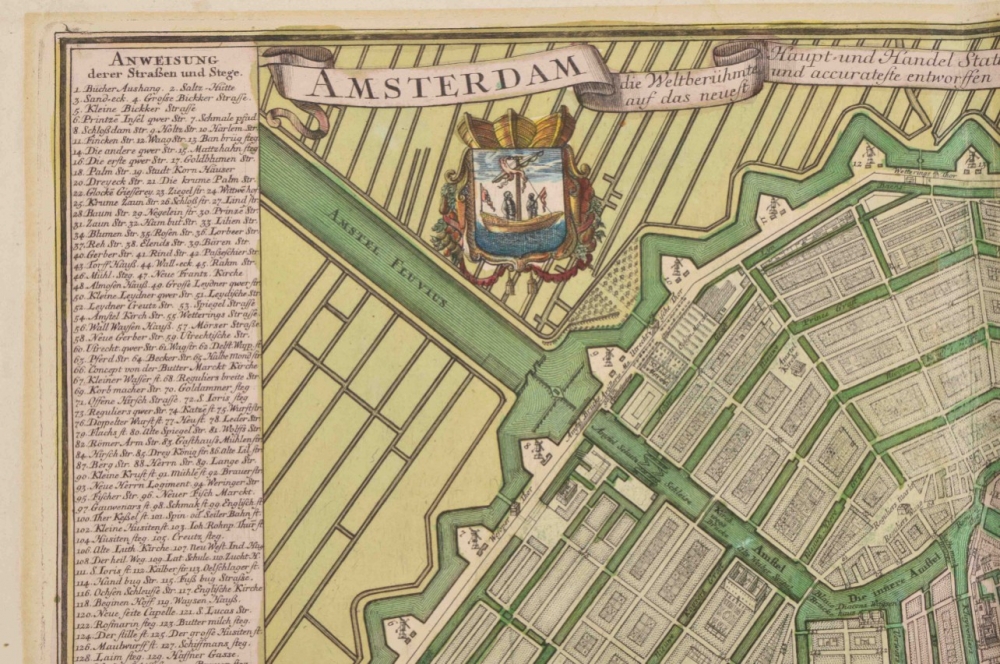 ANWEISUNG
derer Straßen und Stege.
1. Bücher Aushang. 2. Saltz-Hütte
3. Sand-eck. 4. Große Bickker Strasse.
5. Kleine Bickker Strasse
6. Printze Insel qwer Str. 7. Schmale pfad
8. Schloßdam Str. 9. Holtz Str. 10. Harlem Str.
11. Fincken Str. 12. Waag Str. 13. Ban brüg steg
14. Die andere qwer Str. 15. Mattzhahn steg
16. Die erste qwer Str. 17. Goldblumen Str.
18. Palm Str. 19. Stadt Korn Häuzer
20. Dreyeck Str. 21. Die krume Palm Str.
22. Glocke Giesserey 23. Ziegel str. 24. Wittwe hof
25. Krume Zaun Str. 26. Schloß str. 27. Land str
28. Baum Str. 29. Negelein str. 30. Prinze Str.
31. Zaun Str. 32. Ham but Str. 33. Lilien Str.
34. Blumen Str. 35. Rosen Str. 36. Lorbeer Str.
37. Reh Str. 38. Elends Str. 39. Bären Str.
40. Gerber Str. 41. Rind Str. 42. Paßeschier Str
43. Torff Hauß. 44. Wall-eck 45. Rahm Str.
46. Mühl. Steg. 47. Neue Frantz. Kirche
48. Almosen Hauß. 49. Große Leydner qwer str
50. Kleine Leydner qwer Str. 51. Leydische Str
52. Leydner Creutz Str. 53. Spiegel Straße
54. Amstel Kirch Str. 55. Wetterings Straße
56. Wall Waysen Hauß. 57. Mörser Straße
58. Neue Gerber Str. 59. Utrechtische Str.
60. Utrecht. qwer Str. 61. Wag str. 62. Delft. Wap. st
63. Pferd Str. 64. Becker Str. 65. Halbe mond str
66. Concept von der Butter Marckt Kirche
67. Kleiner Wasser st. 68. Reguliers breite Str.
69. Korb macher Str. 70. Goldammer steg
71. Offene Hirsch Straße. 72. S. Ioris steg
73. Reguliers qwer Str. 74. Katze st. 75. Wurst str
76. Doppelter Wurst st. 77. Heu st. 78. Leder Str.
79. Flachs st. 80. Alte Spiegel Str. 81. Wolffs Str
82. Römer Arm Str. 83. Gasthauß Mühlen str
84. Hirsch Str. 85. Drey König str. 86. Alte Lil. str
87. Berg Str. 88. Herrn Str. 89. Lange Str.
90. Kleine Krust st. 91. Mühle st. 92. Brauer str
93. Neue Herrn Logiment. 94. Weringer Str.
95. Fischer Str. 96. Neuer Fisch Marckt.
97. Gauwenars st. 98. Schmak st. 99. Englisch st
100. Ther Keßel st. 101. Spin. od. Seiler Bahn st.
102. Kleine Huxiten st. 103. Ioh. Rohnp. Thür st
104. Huxiten steg. 105. Creutz steg.
106. Alte Luth. Kirche. 107. neu West. Ind. Haus
108. Der heil. Weg. 109. Lat. Schule. 110. Zucht. H.
111. S. Ioris st. 112. Kälber str 113. Oelschlager st.
114. Hand bug Str. 115. Fuß bug Straße.
116. Ochsen Schleusse Str. 117. Englische Kirche
118. Beginen Hoff. 119. Wayzen Hauß.
120. Neue seite Capelle. 121. S. Lucas Str.
122. Rosmarin steg. 123. Butter milch steg.
124. Der stille st. 125. Der große Huxiten st
126. Maulwurff st. 127. Schiffmans steg.
128. Laim steg. 129. Häffner Gasse.
AMSTERDAM
die Weltberühmte
auf das neuest
Haupt-und Handel Stat
und accurateste entworffen
AMSTEL FLUVIUS
Wetterings thor
Amstel
Schleuse
Amstel
Die innere Amstel
Reguliers